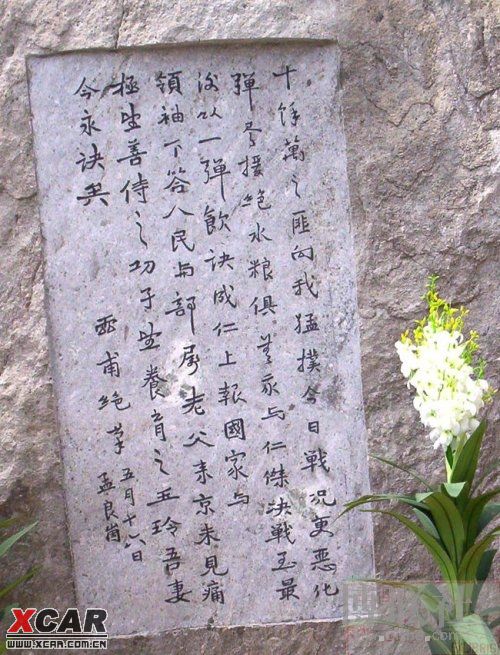 十餘萬之匪向我猛撲今日戰況更恶化
彈尽援絶水粮俱無我与仁傑決戰至最
後以一彈飲訣成仁上報國家与
領袖下答人民与部屬老父来京未見痛
極望善侍之幼子望養育之玉玲吾妻
今永訣矣
灵甫絶筆
五月十六日
孟良崮
XCAR
WWW.XCAR.COM.CN